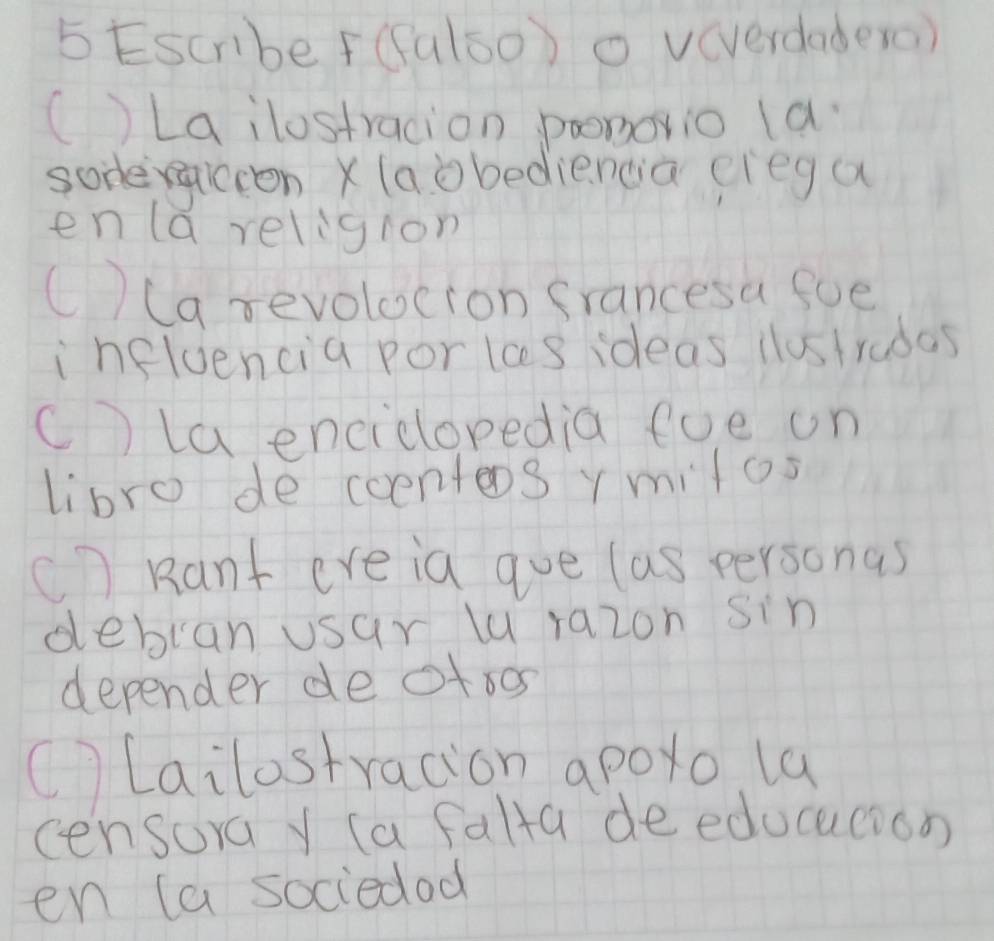 5 Escribe F (falso) o V (verdadero)
( ) La ilostracion promovio la
y la obediencia ciega
en la religion
( ) La revolocion francesa foe
infloencia por las ideas ilostradas
( ) la enciclopedia foe un
libro de coentos y mitos
( ) Kant creia que las personas
debian usar la razon sin
depender de otros
( ) La ilostracion apoyo la
censora y la falta de educacion
en la sociedad